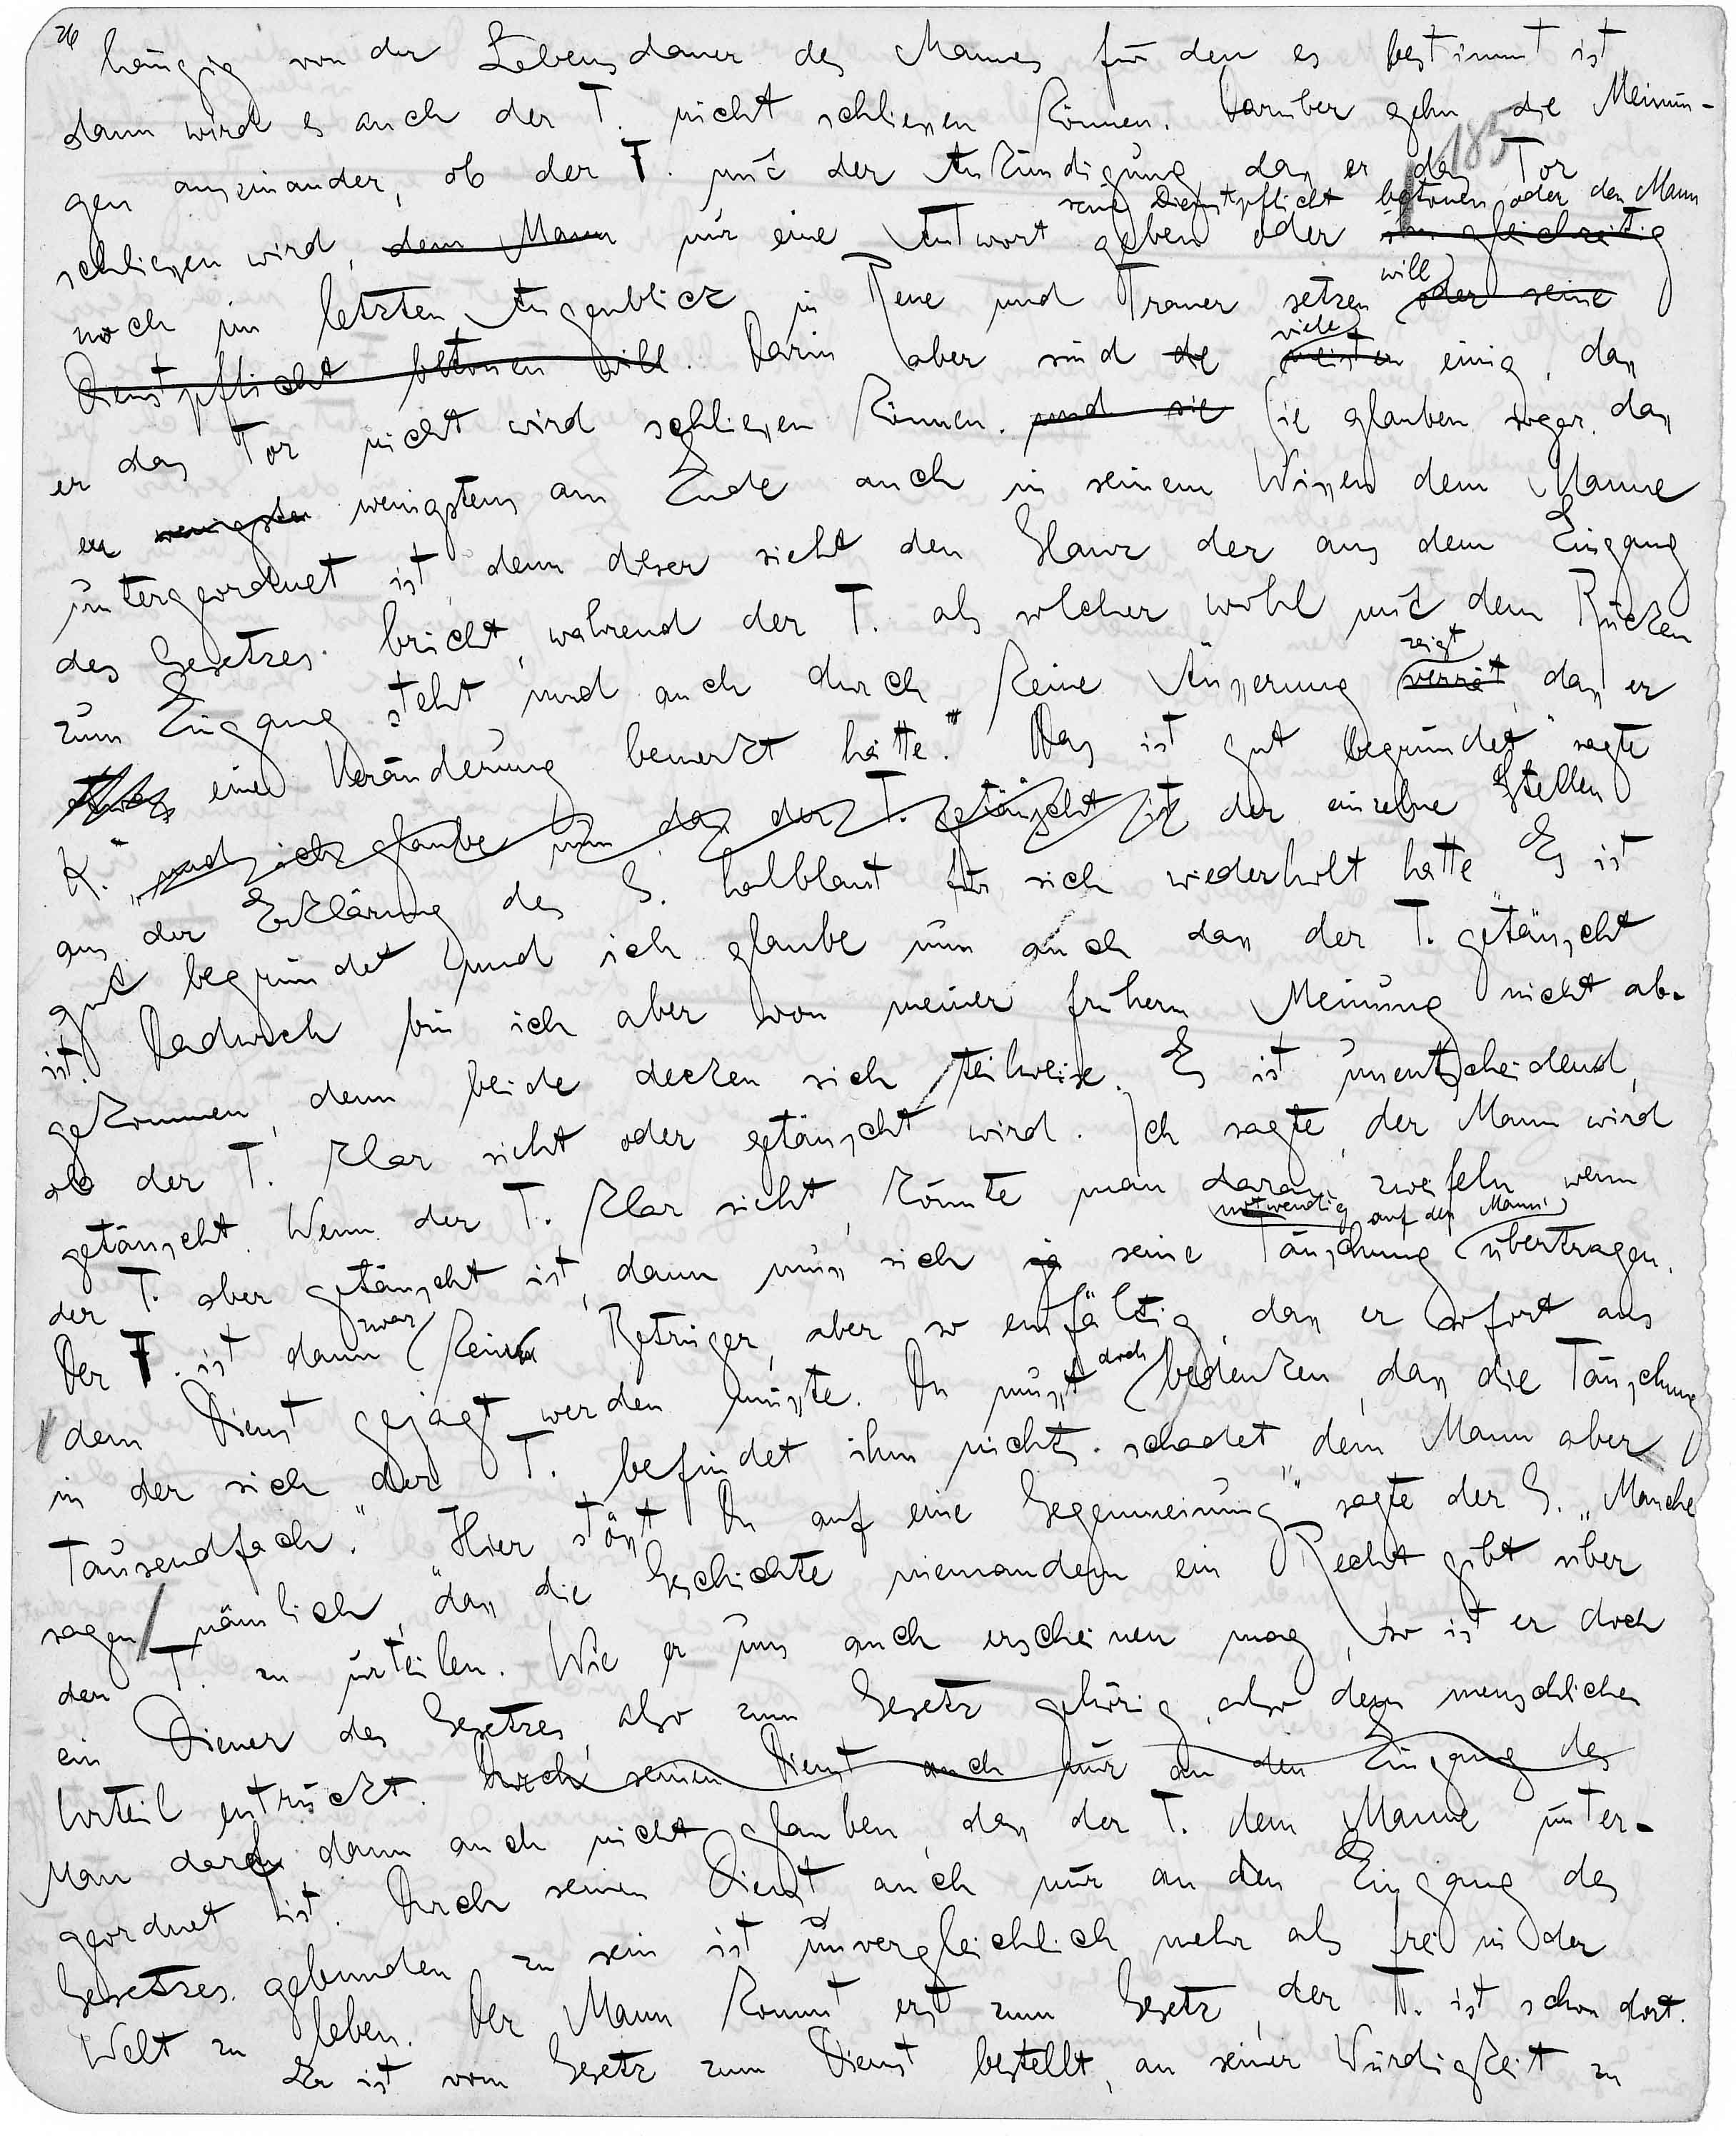 26
hängig von der Lebensdauer des Mannes für den es bestimmt ist
185
dann wird es auch der T. nicht schliessen können. Darüber gehn die Meinun-
gen auseinander, ob der T. mit der Ankündigung dass er das Tor
seine Dienstpflicht betonen oder den Mann
schliessen wird, dem Mann nur eine Antwort geben oder ihn gleichzeitig
will
noch im letzten Augenblick in Reue und Trauer setzen oder seine
viele
Dienstpflicht betonen will. Darin aber sind die meisten einig, dass
er das Tor nicht wird schliessen können. und sie Sie glauben sogar, dass
er wenigsten wenigstens am Ende auch in seinem Wissen dem Manne
untergeordnet ist, denn dieser sieht den Glanz der aus dem Eingang
des Gesetzes bricht, während der T. als solcher wohl mit dem Rücken
zeigt
zum Eingang steht und auch durch keine Äusserung verrät, dass er
etwas eine Veränderung bemerkt hätte." "Das ist gut begründet" sagte
K. "und ich glaube nun dass der T. getäuscht ist der einzelne Stellen
aus der Erklärung des G. halblaut für sich wiederholt hatte "Es ist
gut begründet und ich glaube nun auch dass der T. getäuscht
ist. Dadurch bin ich aber von meiner frühern Meinung nicht ab-
gekommen, denn beide decken sich teilweise. Es ist unentscheidend,
ob der T. klar sieht oder getäuscht wird. Ich sagte, der Mann wird
getäuscht. Wenn der T. klar sieht, könnte man daran zweifeln, wenn
notwendig auf den Mann
der T. aber getäuscht ist, dann muss sich ja seine Täuschung übertragen.
zwar
Der T. ist dann kein Betrüger, aber so einfältig, dass er sofort aus
doch
dem Dienst gejagt werden müsste. Du musst bedenken, dass die Täuschung
in der sich der T. befindet ihm nichts schadet dem Mann aber
tausendfach." "Hier stösst Du auf eine Gegenmeinung" sagte der G. "Manche
sagen nämlich, dass die Geschichte niemandem ein Recht gibt über
den T. zu urteilen. Wie er uns auch erscheinen mag, so ist er doch
ein Diener des Gesetzes, also zum Gesetz gehörig, also dem menschlichen
Urteil entrückt. Durch seinen Dienst auch nur an den Eingang des
Man darf dann auch nicht glauben, dass der T. dem Manne unter-
geordnet ist. Durch seinen Dienst auch nur an den Eingang des
Gesetzes gebunden zu sein ist unvergleichlich mehr als frei in der
Welt zu leben. Der Mann kommt erst zum Gesetz, der T. ist schon dort.
Er ist vom Gesetz zum Dienst bestellt, an seiner Würdigkeit zu